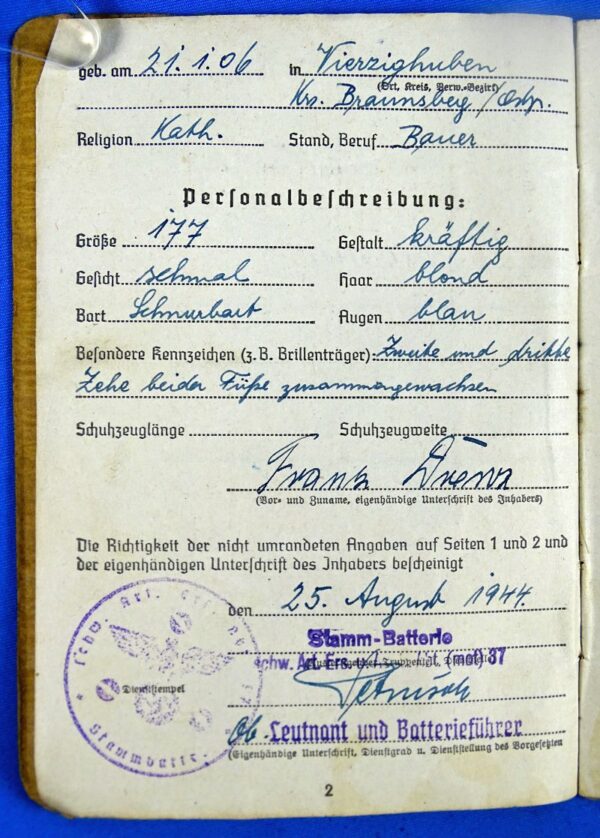 geb. am 21.1.06 in Vierzighuben
(Ort, Kreis, Verw.-Bezirk)
Krs. Braunsberg/Ostp.
Religion Kath. Stand, Beruf Bauer
Personalbeschreibung:
Größe 177 Gestalt kräftig
Gesicht schmal Haar blond
Bart Schnurbart Augen blau
Besondere Kennzeichen (z.B. Brillenträger): Zweite und dritte
Zehe beider Füße zusammengewachsen
Schuhzeuglänge Schuhzeugweite
Frank
(Vor- und Zuname, eigenhändige Unterschrift des Inhabers)
Die Richtigkeit der nicht umrandeten Angaben auf Seiten 1 und 2 und
der eigenhändigen Unterschrift des Inhabers bescheinigt
den 25. August 1944.
Stamm-Batterie
schw. Art. Ers. (mot) 37
Dienststempel
Stammbattr.
Ob. Leutnant und Batterieführer
(Eigenhändige Unterschrift, Dienstgrad u. Dienststellung des Vorgesetzten
2